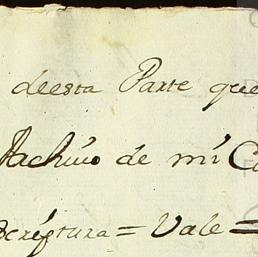 deesta Parte que
Rachivo de mi C
scriptura = Vale =